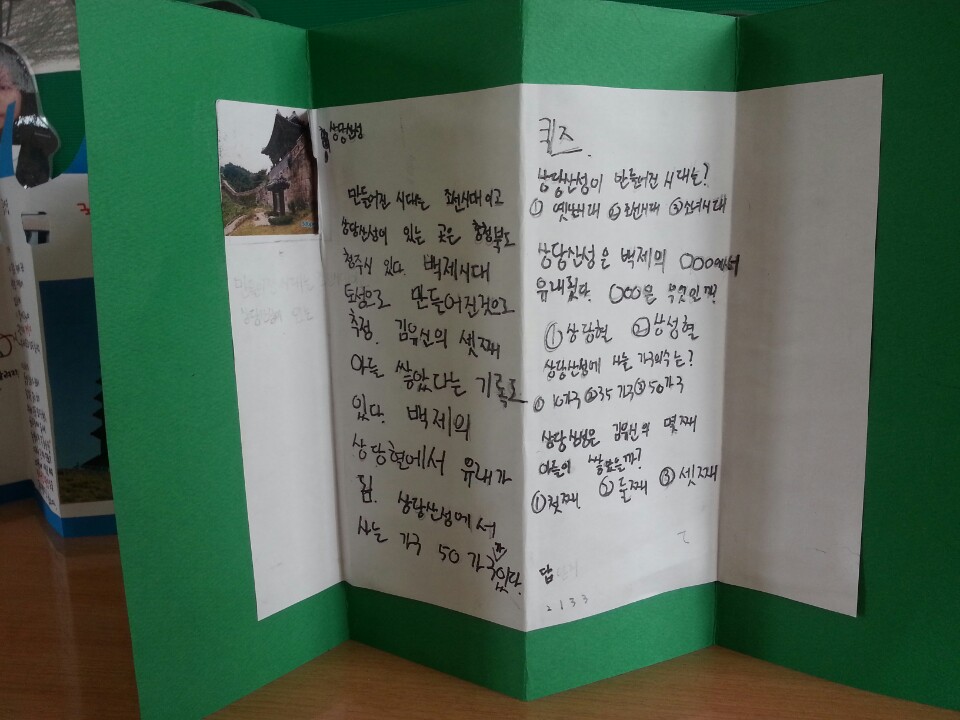 상당산성
만들어진 시대는 조선시대 이고
상당산성이 있는 곳은 충청북도
청주시 있다. 백제시대
토성으로 만들어진것으로
측정. 김유신의 셋째
아들 쌓았다는 기록도
있다. 백제의
상당현에서 유래가
됨. 상당산성에서
사는 가구 50 가구가 있다.
퀴즈
상당산성이 만들어진 시대는?
① 옛날시대 ② 조선시대 ③ 소녀시대
상당산성은 백제의 ○○○에서
유래됐다. ○○○은 무엇인가?
① 상당현 ② 상성혈
상당산성에 사는 가구의수는?
① 10가구 ② 35 가구 ③ 50가구
상당산성은 김유신의 몇째
아들이 쌓았을까?
① 첫째 ② 둘째 ③ 셋째
답
2 1 3 3